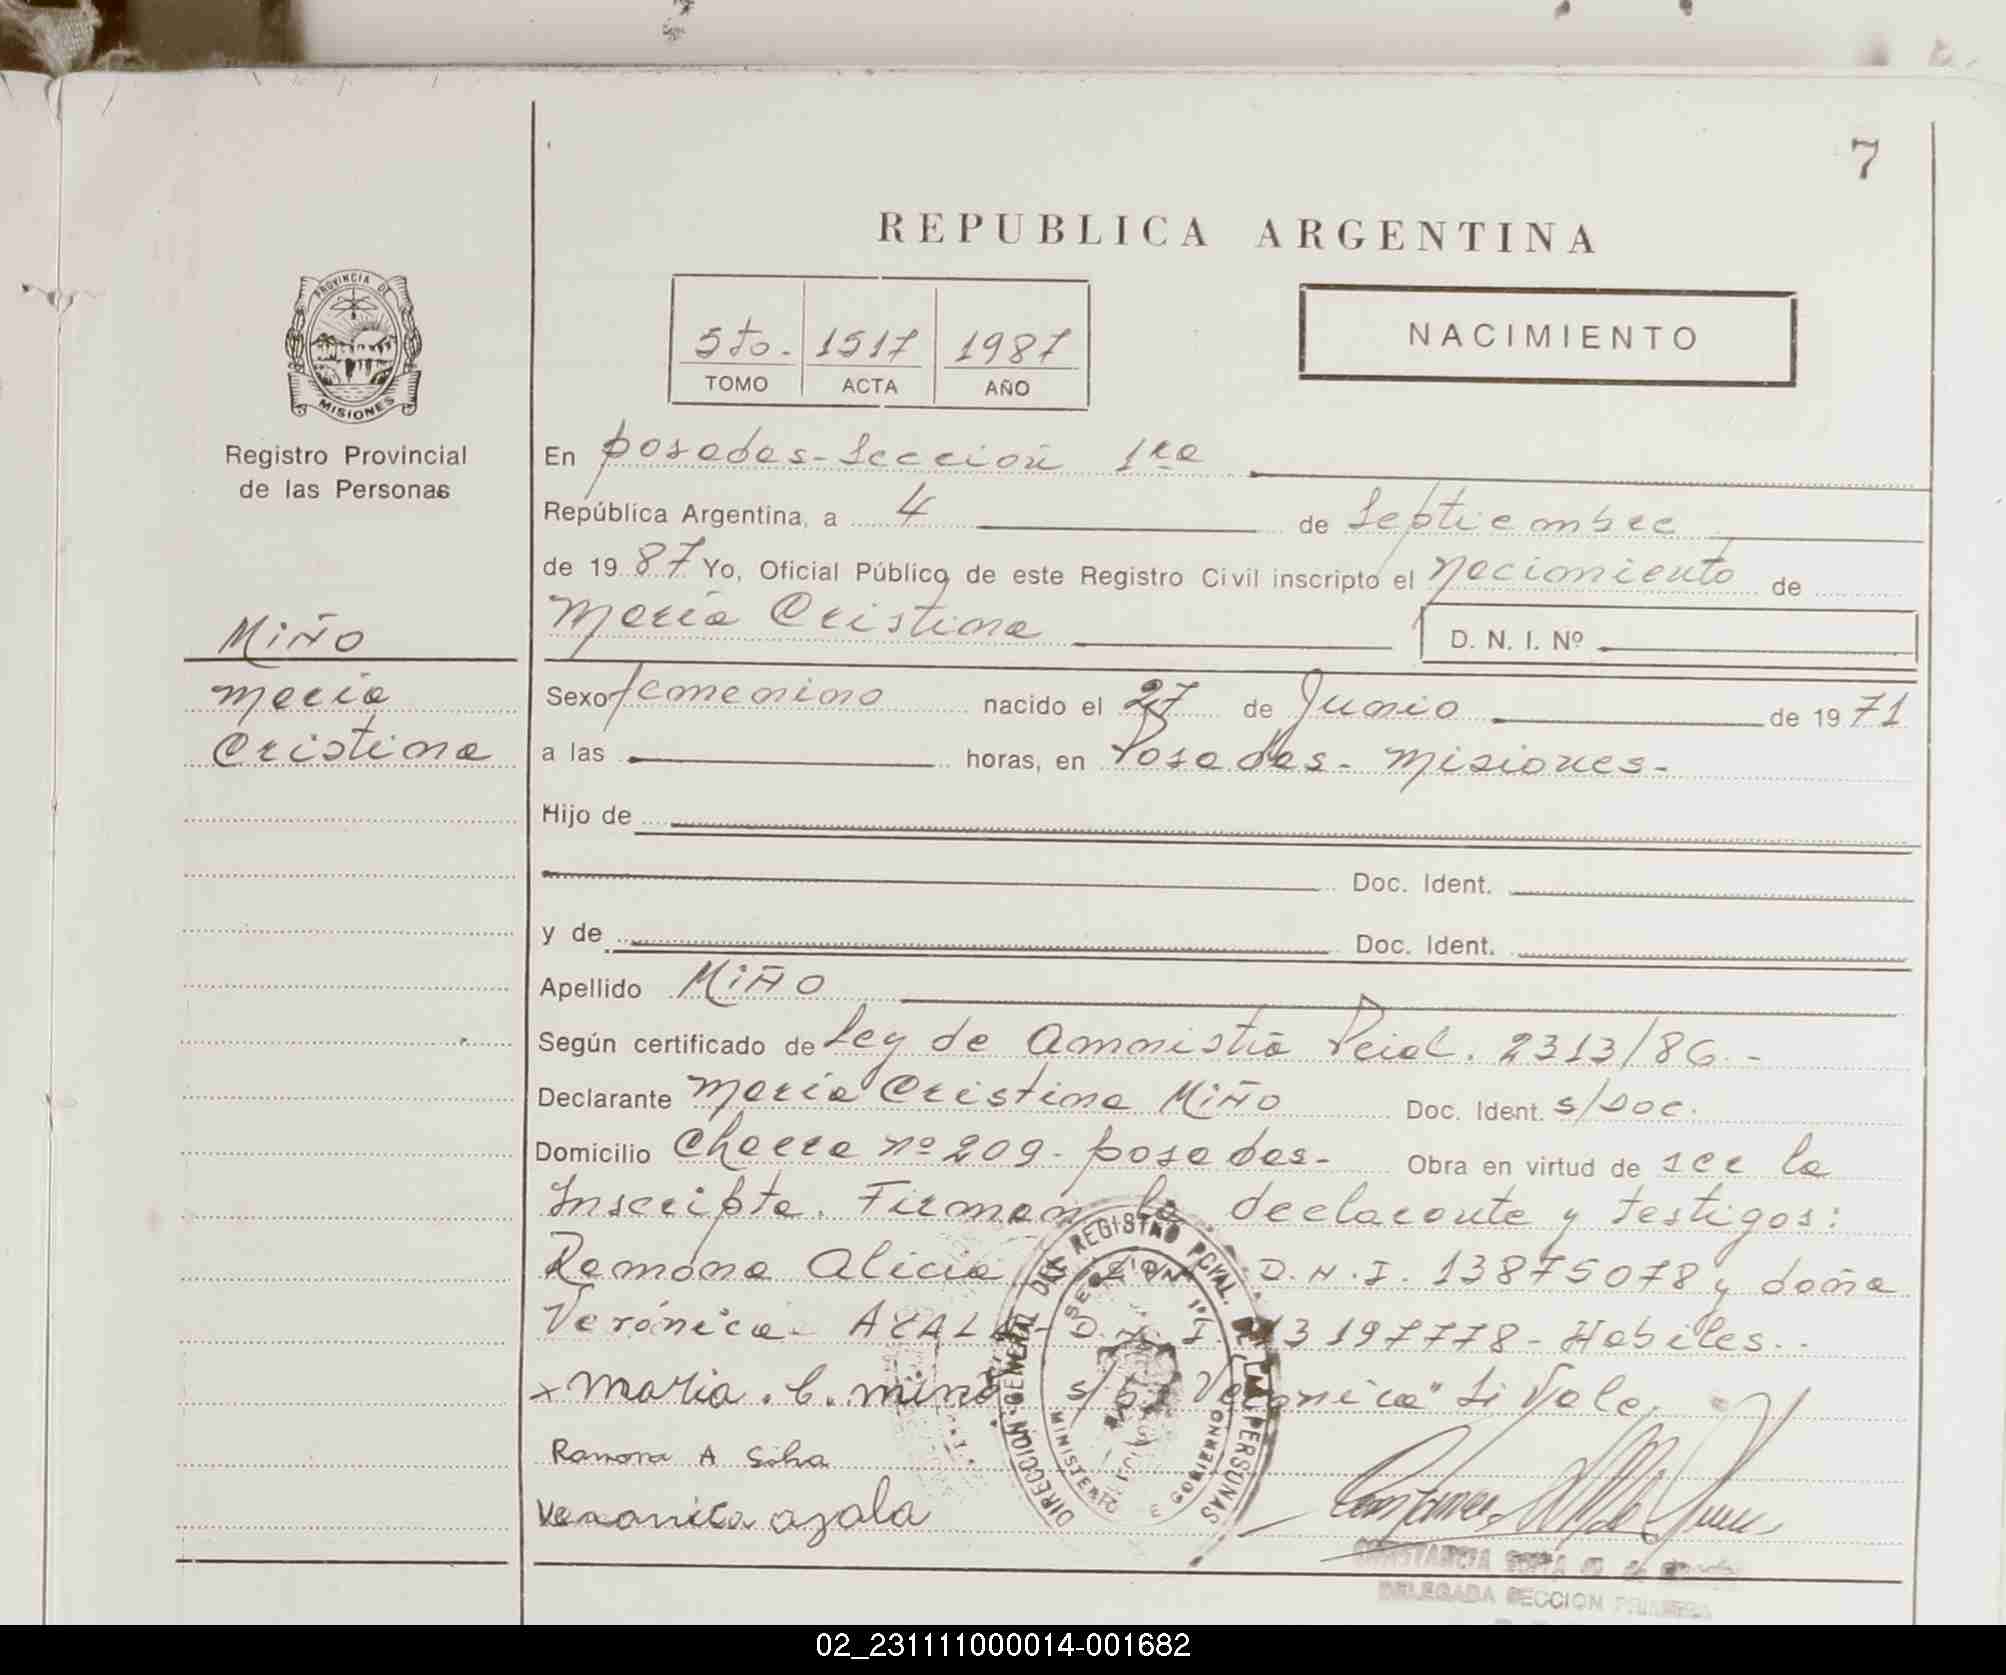 7
REPUBLICA ARGENTINA
PROVINCIA DE
MISIONES
Registro Provincial
de las Personas
5to. 1517 1987
TOMO ACTA AÑO
NACIMIENTO
En Posadas - Sección 1ra
República Argentina, a 4 de Septiembre
de 1987 Yo, Oficial Público de este Registro Civil inscripto el nacimiento de
María Cristina D. N. I. Nº
MIÑO
María
Cristina
Sexo femenino nacido el 27 de Junio de 1971
a las horas, en Posadas - Misiones -
Hijo de
Doc. Ident.
y de Doc. Ident.
Apellido MIÑO
Según certificado de Ley de Amnistía Pcial. 2313/86.-
Declarante María Cristina MIÑO Doc. Ident. s/Doc.
Domicilio Chacra nº 209 - Posadas - Obra en virtud de ser la
Inscripta. Firman la declarante y testigos:
Ramona Alicia D.N.I. 13875078 y doña
Verónica - AYALA - D.N.I. 13197778 - Hábiles..
x Maria. C. miño s/b. "Veronica" Si Vale.
Ramona A Silva
Veronica ayala
DIRECCION GENERAL DEL REGISTRO PCIAL. DE LAS PERSONAS
SECCION 1ra
MINISTERIO DE GOBIERNO
CONSTANCIA
DELEGADA SECCION PRIMERA
02_231111000014-001682